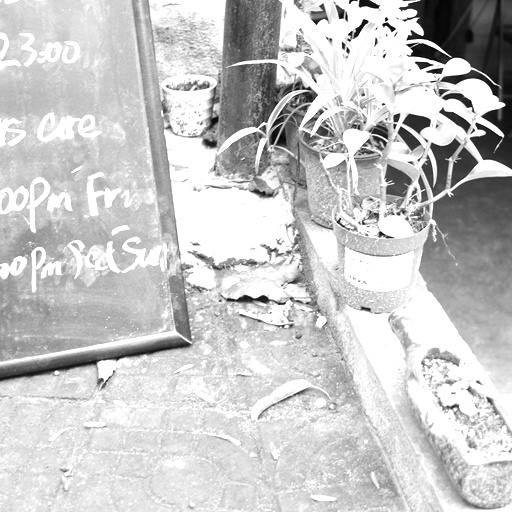 23:00
rs are
00pm Fri
00pm Sat&Sun